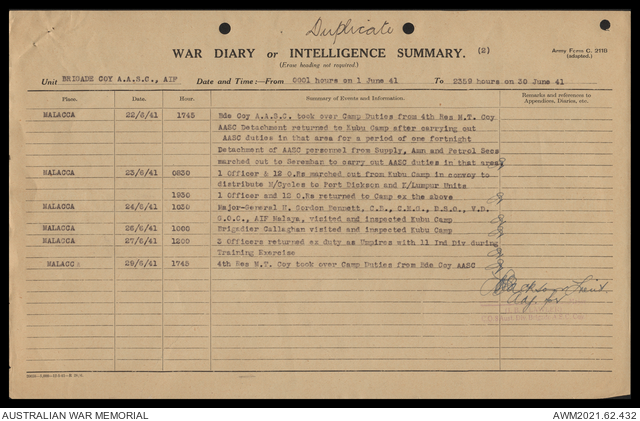 Duplicate
WAR DIARY or INTELLIGENCE SUMMARY. (2)
Army Form C. 2118
(adapted.)
(Erase heading not required.)
Unit BRIGADE COY A.A.S.C., AIF Date and Time:—From 0001 hours on 1 June 41 To 2359 hours on 30 June 41
Place. Date. Hour. Summary of Events and Information. Remarks and references to Appendices, Diaries, etc.
MALACCA 22/6/41 1745 Bde Coy A.A.S.C. took over Camp Duties from 4th Res M.T. Coy
AASC Detachment returned to Kubu Camp after carrying out
AASC duties in that area for a period of one fortnight
Detachment of AASC personnel from Supply, Amn and Petrol Secs
marched out to Seremban to carry out AASC duties in that area
MALACCA 23/6/41 0830 1 Officer & 12 O.Rs marched out from Kubu Camp in convoy to
distribute M/Cycles to Port Dickson and K/Lumpur Units
1930 1 Officer and 12 O.Rs returned to Camp ex the above
MALACCA 24/6/41 1030 Major-General H. Gordon Bennett, C.B., C.M.G., D.S.O., V.D.
G.O.C., AIF Malaya, visited and inspected Kubu Camp
MALACCA 26/6/41 1000 Brigadier Callaghan visited and inspected Kubu Camp
MALACCA 27/6/41 1200 3 Officers returned ex duty as Umpires with 11 Ind Div during
Training Exercise
MALACCA 29/6/41 1745 4th Res M.T. Coy took over Camp Duties from Bde Coy AASC
Lieut
for
AUSTRALIAN WAR MEMORIAL
AWM2021.62.432